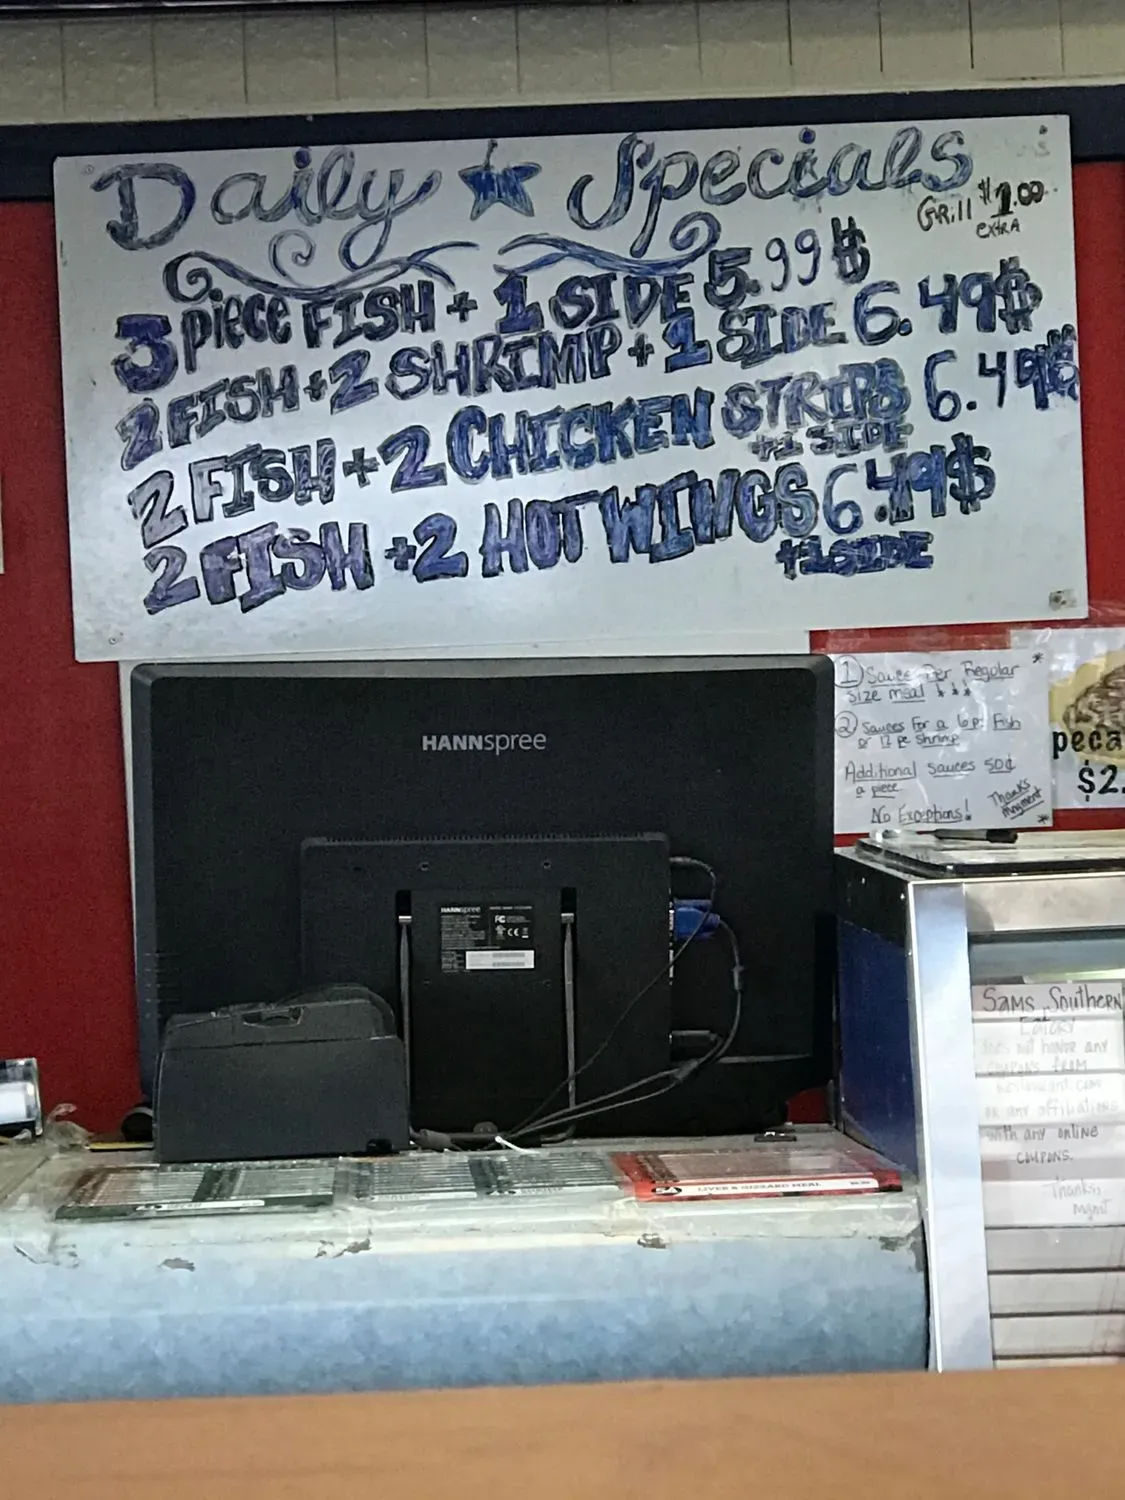 Daily Specials
GRill $1.00
EXTRA
3 piece FISH + 1 SIDE 5.99$
2 FISH + 2 SHRIMP + 1 SIDE 6.49$
2 FISH + 2 CHICKEN STRIPS 6.49$
+ 1 SIDE
2 FISH + 2 HOT WINGS 6.49$
+ 1 SIDE
HANNspree
1 Sauce Per Regular
Size meal ***
2 Sauces For a 6 pc Fish
or 12 pc Shrimp
Additional Sauces 50¢
a piece
No Exceptions!
Thanks
Mngment
peca
$2.
HANNspree
FC CE
SAMS Southern
EATERY
does not honor any
coupons from
Restaurant.com
or any affiliations
with any online
coupons.
Thanks,
Mgmt
LIVER & GIZZARD MEAL